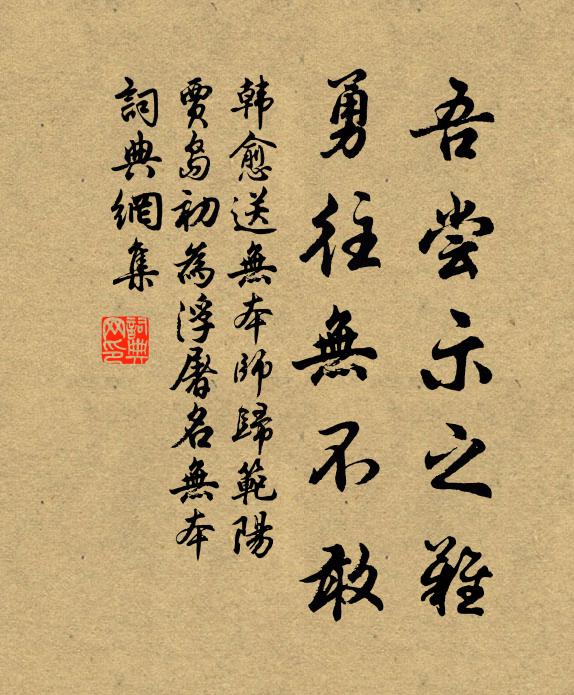 吾尝示之難
勇往無不敢
韩愈送無本師歸範陽
賈島初為浮屠名無本
詞典網集
詞典网印